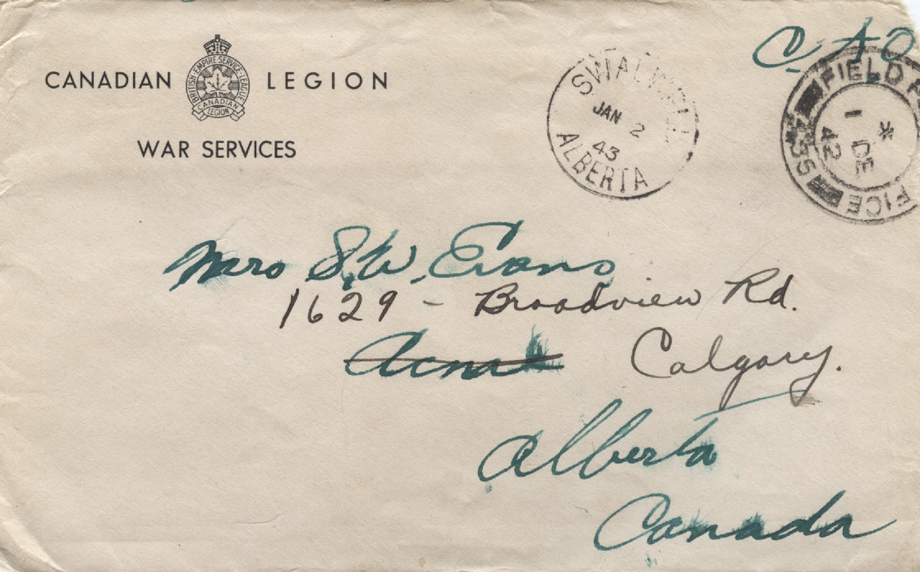 CANADIAN LEGION
BRITISH EMPIRE SERVICE LEAGUE
CANADIAN
LEGION
WAR SERVICES
SWALWELL
JAN 2
43
ALBERTA
FIELD
1 DE
42
FICE
Mrs S.W. Evans
1629 - Broadview Rd.
Acme Calgary.
Alberta
Canada